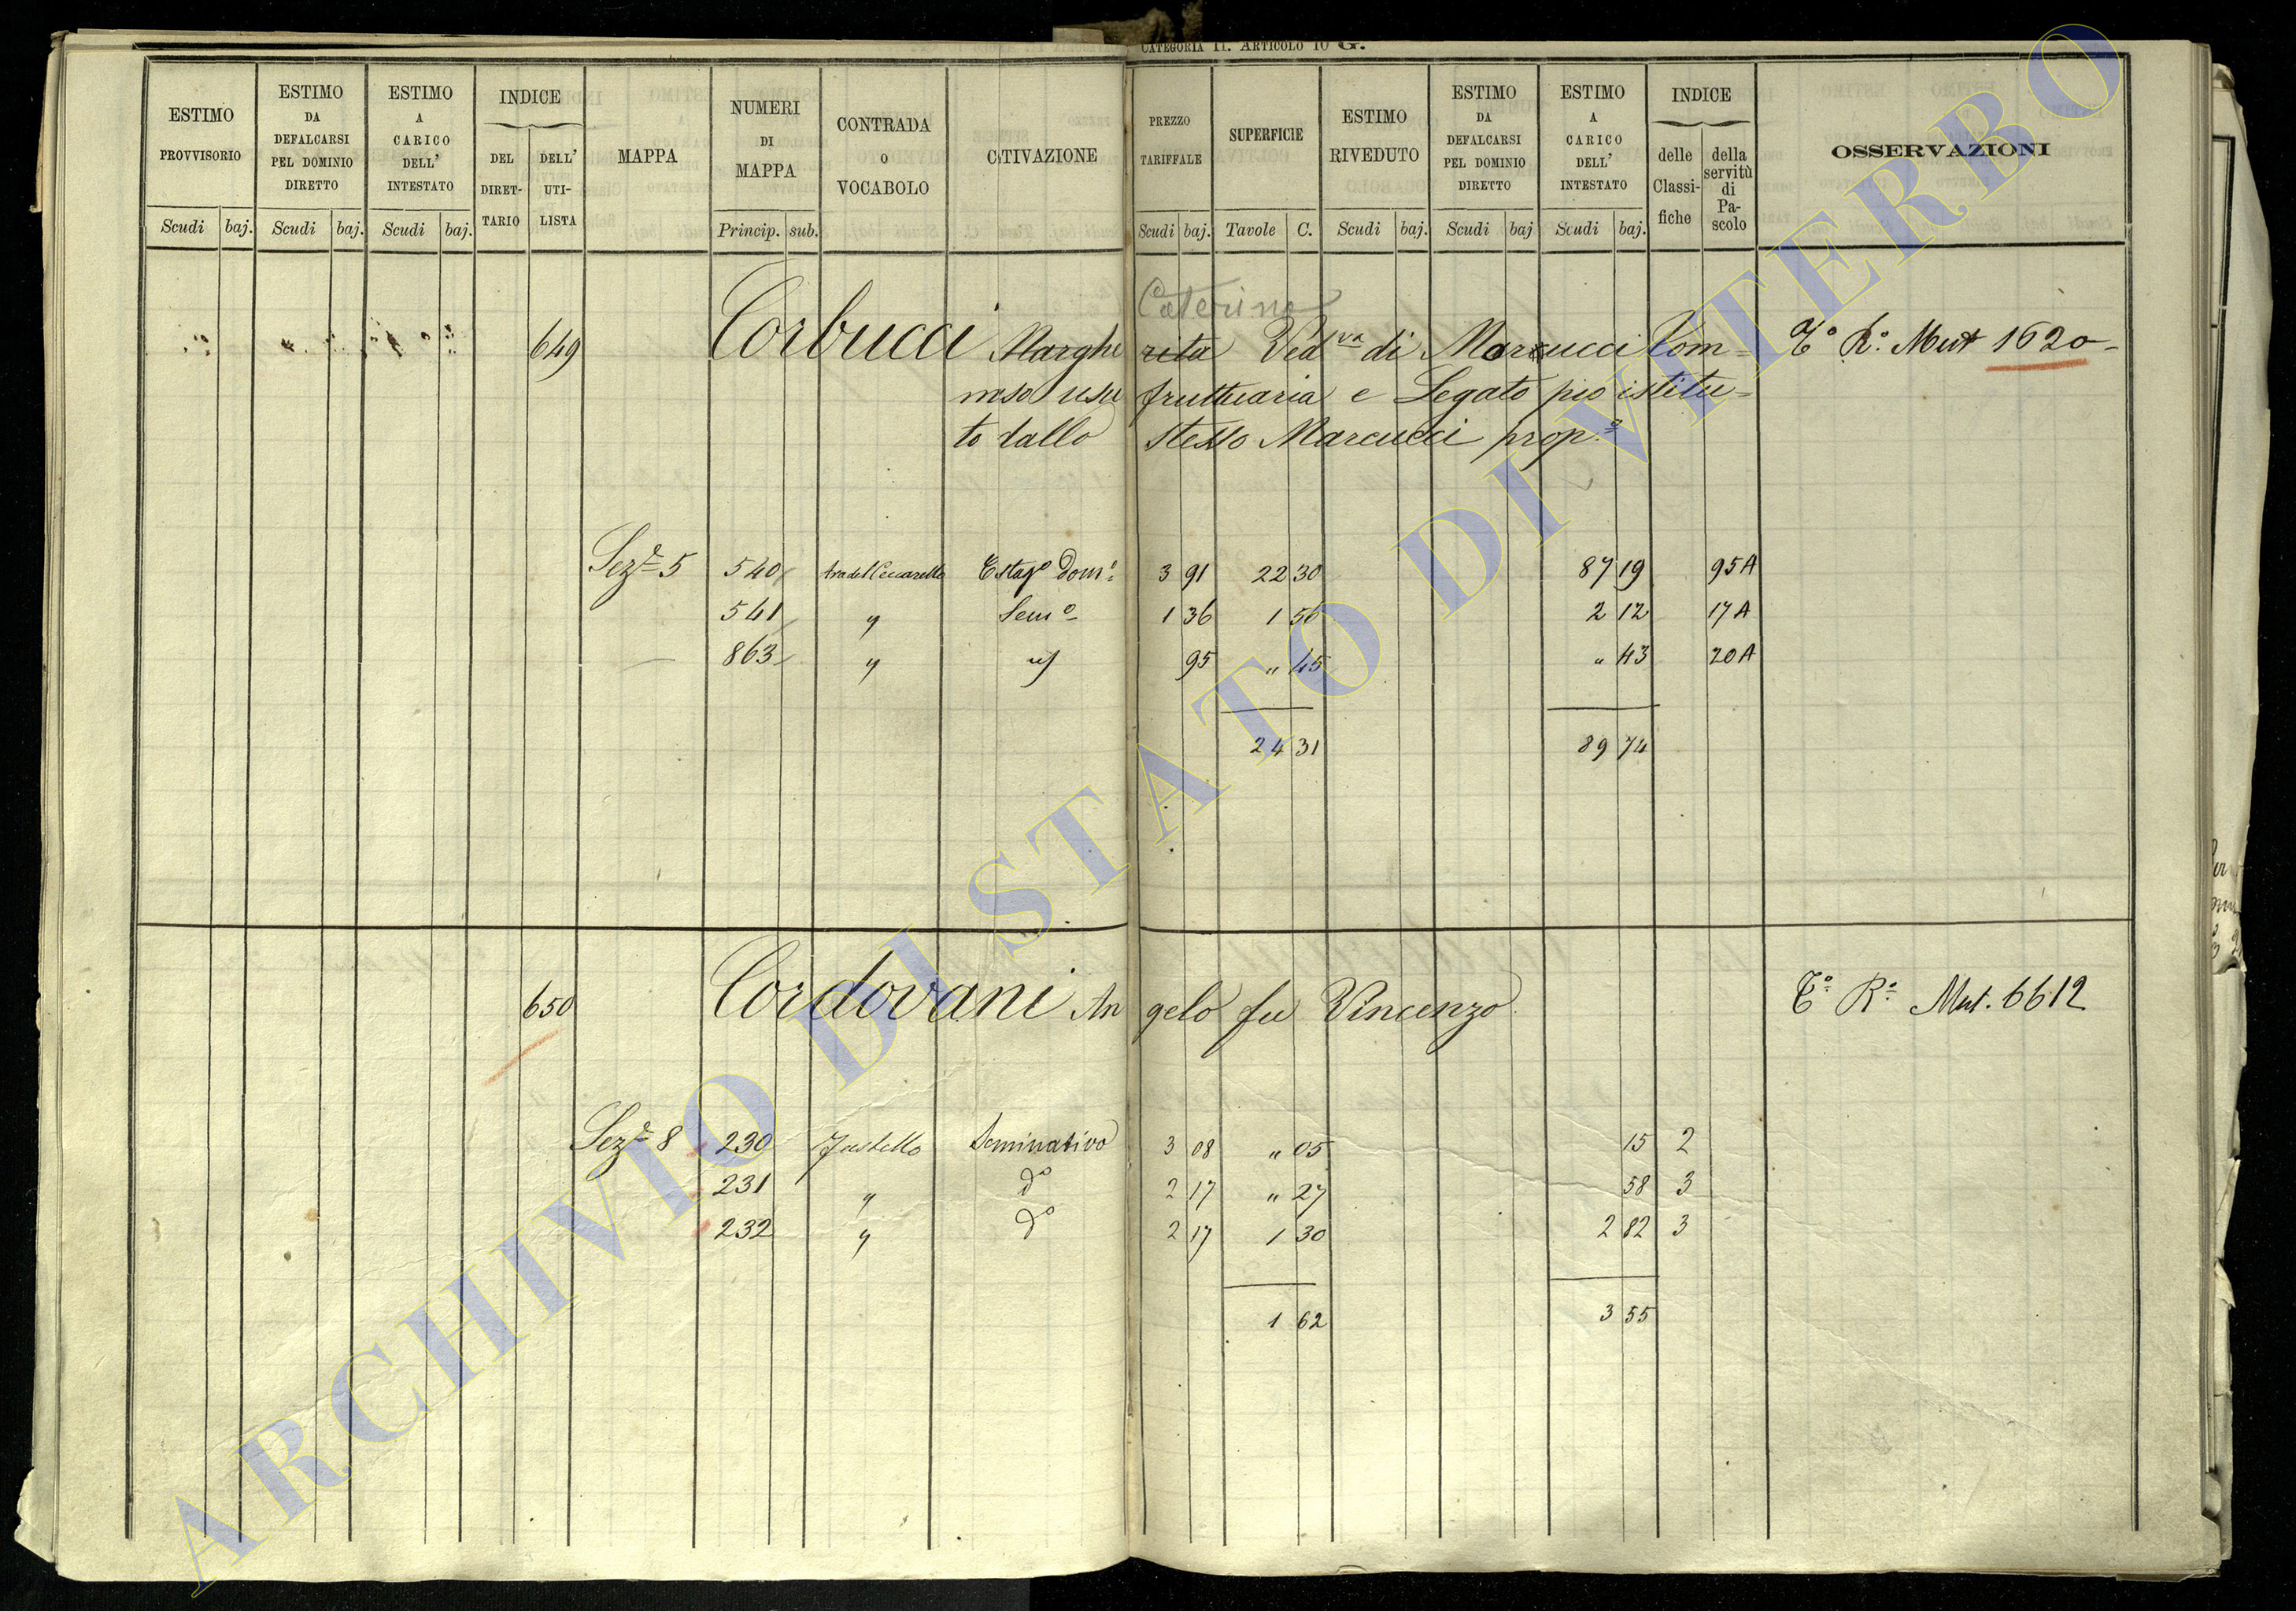 CATEGORIA II. ARTICOLO 10 G.
ESTIMO PROVVISORIO
ESTIMO DA DEFALCARSI PEL DOMINIO DIRETTO
ESTIMO A CARICO DELL' INTESTATO
INDICE
DEL DIRETTARIO
DELL' UTILISTA
MAPPA
NUMERI DI MAPPA
CONTRADA O VOCABOLO
CTIVAZIONE
PREZZO TARIFFALE
SUPERFICIE
ESTIMO RIVEDUTO
ESTIMO DA DEFALCARSI PEL DOMINIO DIRETTO
ESTIMO A CARICO DELL' INTESTATO
INDICE
delle Classifiche
della servitù di Pascolo
OSSERVAZIONI
Scudi baj. Scudi baj. Scudi baj. Princip. sub. Scudi baj. Tavole C. Scudi baj. Scudi baj Scudi baj.
Caterina
649 Corbucci Margherita Ved.va di Marcucci Tom= T.o R.o Mut 1620
maso usufruttuaria e Legato pio istitu=
to dallo stesso Marcucci prop.o
Sez.e 5 540 Estag.o Dom.e 3 91 22 30 87 19 95A
541 " Sem.o 1 36 1 56 2 12 17A
863 " " 95 " 45 " 43 20A
24 31 89 74
650 Cordovani Angelo fu Vincenzo T.o R.o Mut. 6612
Sez.e 8 230 Seminativo 3 08 " 05 15 2
231 " d.o 2 17 " 27 58 3
232 " d.o 2 17 1 30 2 82 3
1 62 3 55
ARCHIVIO DI STATO DI VITERBO